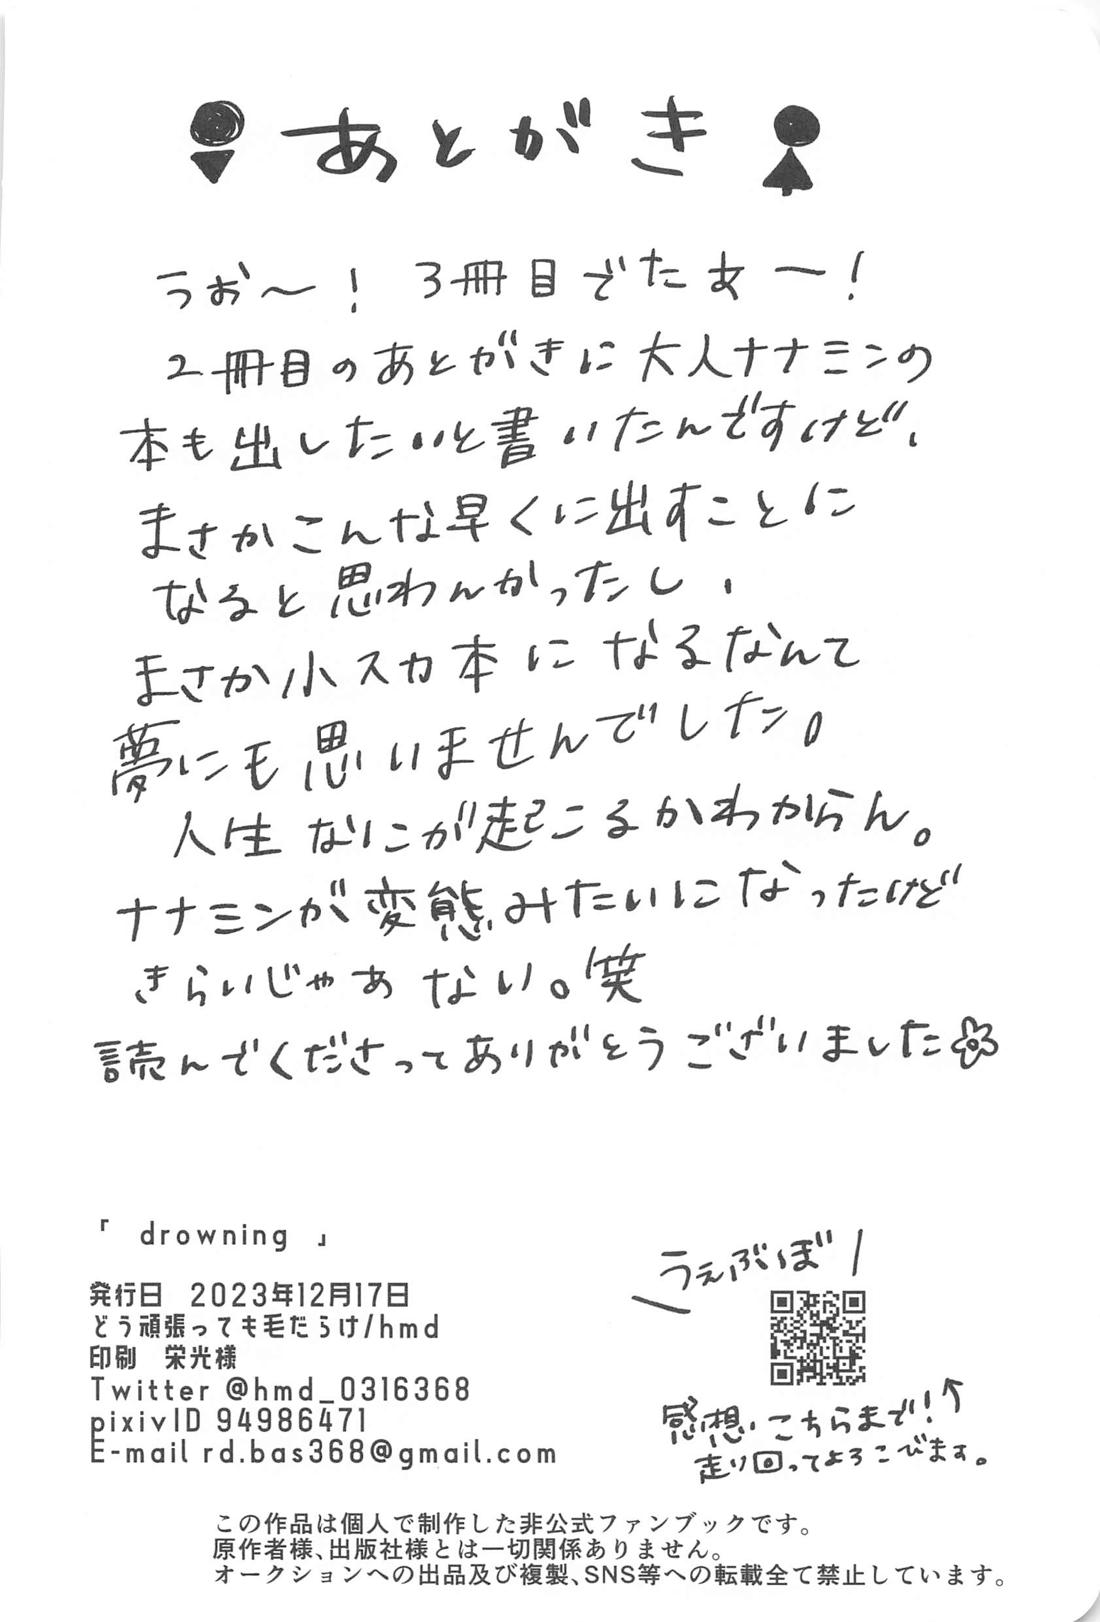 あとがき
うお〜! 3冊目でたぁ〜!
2冊目のあとがきに大人ナナミンの
本も出したいと書いたんですけど、
まさかこんな早くに出すことに
なると思わんかったし、
まさか小スカ本になるなんて
夢にも思いませんでした。
人生なにが起こるかわからん。
ナナミンが変態みたいになったけど
きらいじゃあない。笑
読んでくださってありがとうございました
「 drowning 」
発行日 2023年12月17日
どう頑張っても毛だらけ/hmd
印刷 栄光様
Twitter @hmd_0316368
pixivID 94986471
E-mail rd.bas368@gmail.com
うぇぶぼ
感想こちらまで!
走り回ってよろこびます。
この作品は個人で制作した非公式ファンブックです。
原作者様、出版社様とは一切関係ありません。
オークションへの出品及び複製、SNS等への転載全て禁止しています。